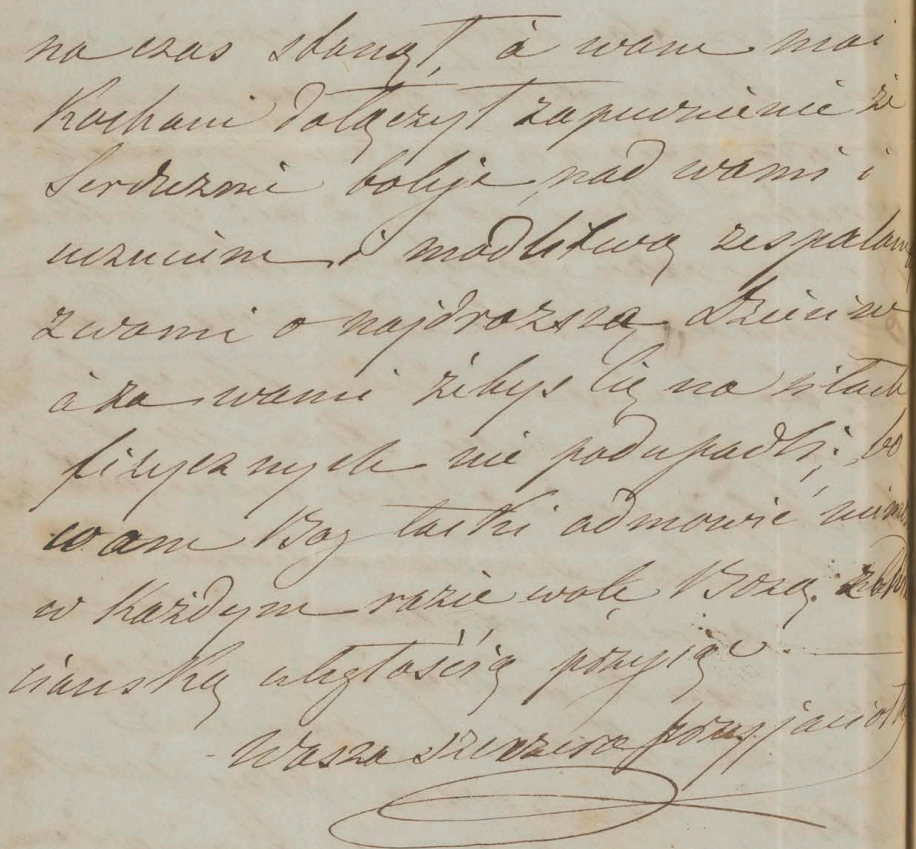 na czas stanął, à wam moi
Kochani dołączył zapewnienie że
Serdecznie boleję nad wami i
uczuciem i modlitwą zespalam
z wami o najdrozszą Dziecinę
à za wami żebyś cię na siłach
fizycznych nie podupadli; bo
wam Bog łaski odmowić nie
w Każdym razie wolę Bozą
ciańską uległością przyjąć. —
Wasza szczera przyjaciołka